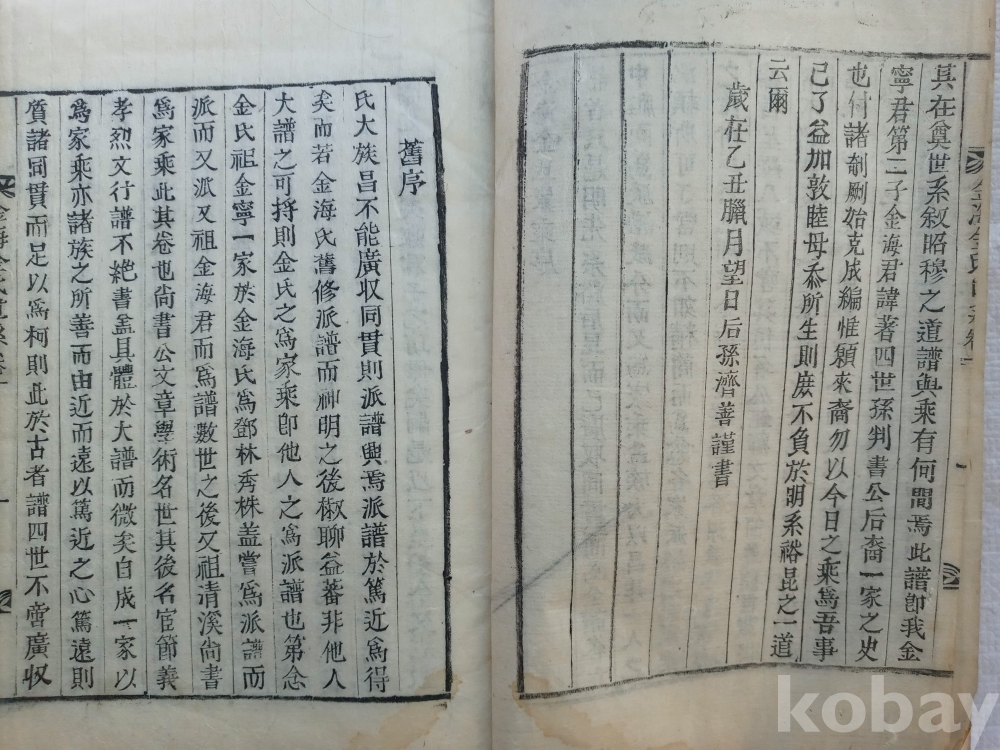 其在奠世系敘昭穆之道譜與乘有何間焉此譜卽我金
寧君第二子金海君諱著四世孫判書公后裔一家之史
也付諸剞劂始克成編惟願來裔勿以今日之乘爲吾事
已了益加敦睦毋忝所生則庶不負於明系裕昆之一道
云爾
歲在乙丑臘月望日后孫濟善謹書
舊序
氏大族昌不能廣収同貫則派譜興焉派譜於篤近爲得
矣而若金海氏舊修派譜而神明之後椒聊益蕃非他人
大譜之可捋則金氏之爲家乘卽他人之爲派譜也第念
金氏祖金寧一家於金海氏爲鄧林秀株盖嘗爲派譜而
派而又派又祖金海君而爲譜數世之後又祖清溪尙書
爲家乘此其卷也尙書公文章學術名世其後名宦節義
孝烈文行譜不絶書盖具體於大譜而微矣自成一家以
爲家乘亦諸族之所善而由近而遠以篤近之心篤遠則
質諸同貫而足以爲柯則此於古者譜四世不啻廣収
kobay